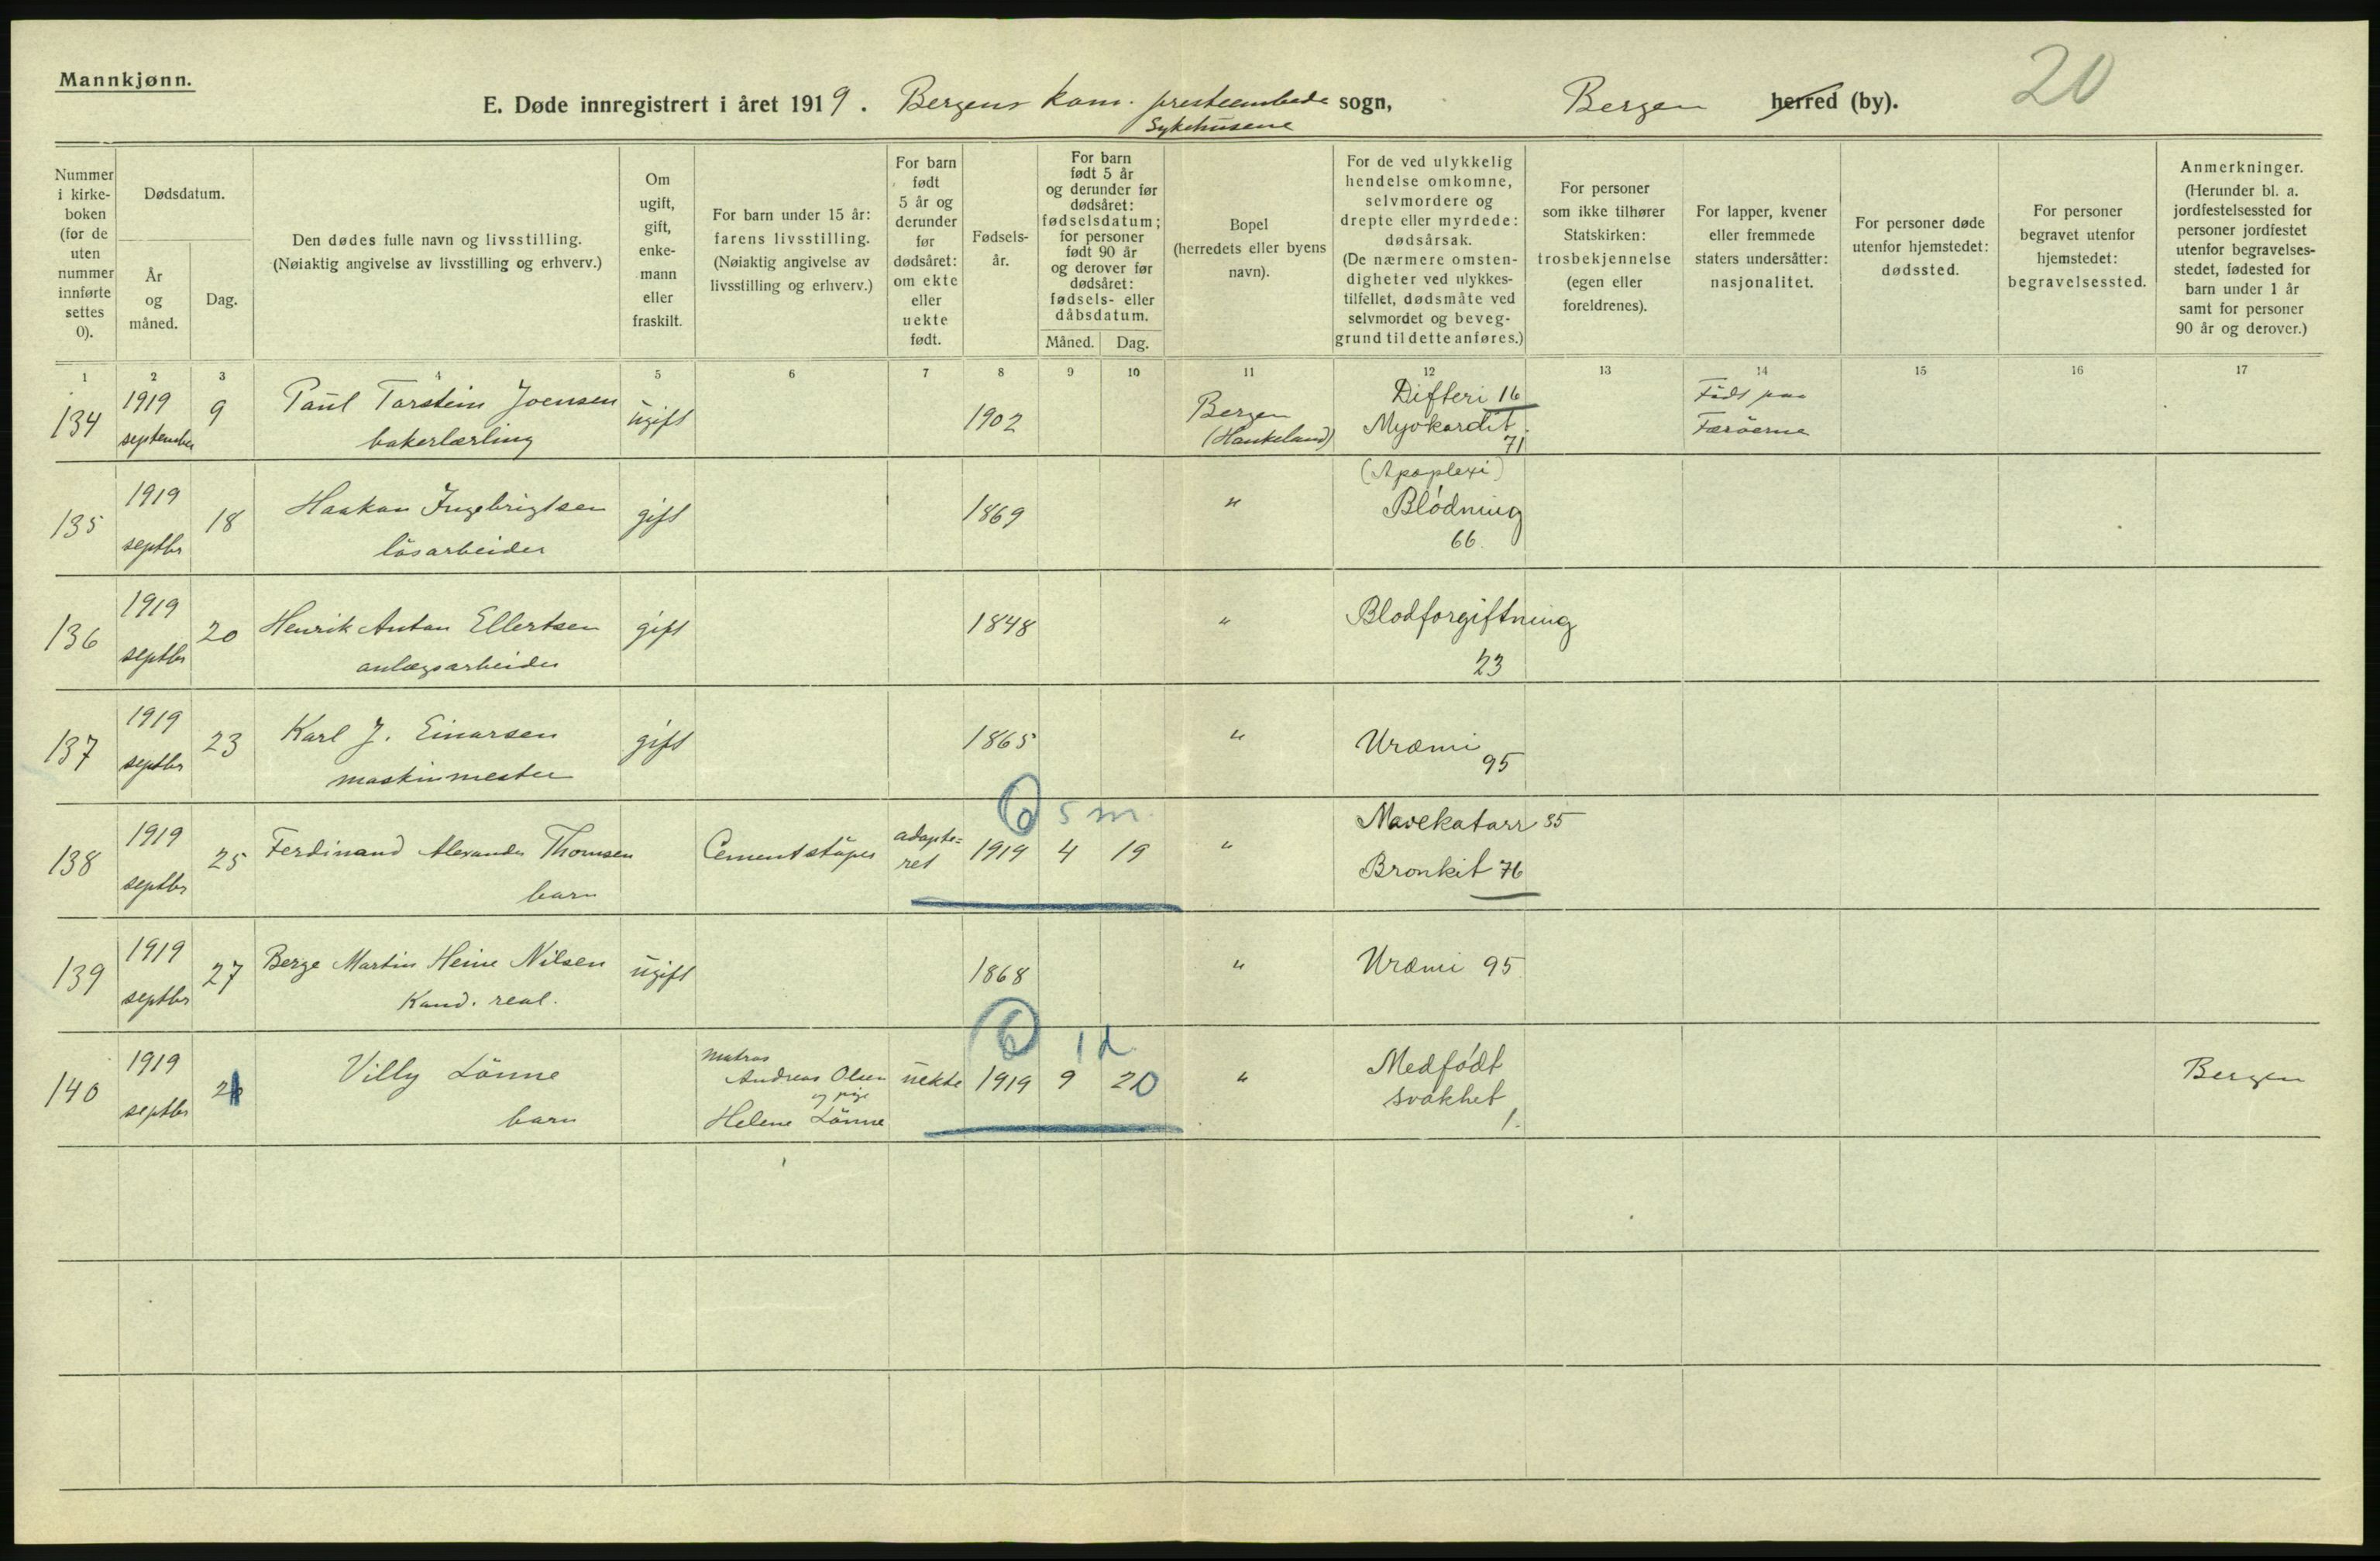 Mannkjønn.
20
E. Døde innregistrert i året 1919. Bergens kom. presteembede sogn, Bergen herred (by).
Sykehusene
Nummer i kirke-boken (for de uten nummer innførte settes 0).
Dødsdatum.
År og måned.
Dag.
Den dødes fulle navn og livsstilling. (Nøiaktig angivelse av livsstilling og erhverv.)
Om ugift, gift, enke-mann eller fraskilt.
For barn under 15 år: farens livsstilling. (Nøiaktig angivelse av livsstilling og erhverv.)
For barn født 5 år og derunder før dødsåret: om ekte eller uekte født.
Fødsels-år.
For barn født 5 år og derunder før dødsåret: fødselsdatum; for personer født 90 år og derover før dødsåret: fødsels- eller dåbsdatum.
Måned.
Dag.
Bopel (herredets eller byens navn).
For de ved ulykkelig hendelse omkomne, selvmordere og drepte eller myrdede: dødsårsak. (De nærmere omsten-digheter ved ulykkes-tilfellet, dødsmåte ved selvmordet og beveg-grund til dette anføres.)
For personer som ikke tilhører Statskirken: trosbekjennelse (egen eller foreldrenes).
For lapper, kvener eller fremmede staters undersåtter: nasjonalitet.
For personer døde utenfor hjemstedet: dødssted.
For personer begravet utenfor hjemstedet: begravelsessted.
Anmerkninger. (Herunder bl. a. jordfestelsessted for personer jordfestet utenfor begravelses-stedet, fødested for barn under 1 år samt for personer 90 år og derover.)
1 2 3 4 5 6 7 8 9 10 11 12 13 14 15 16 17
134 1919 september 9 Paul Torstein Joensen bakerlærling ugift 1902 Bergen (Haukeland) Difteri 16 Myokardit. 71 Født paa Færöerne
135 1919 septbr 18 Haakon Ingebrigtsen løsarbeider gift 1869 " (Apoplexi) Blødning 66.
136 1919 septbr 20 Henrik Anton Ellertsen anlægsarbeider gift 1848 " Blodforgiftning 23
137 1919 septbr 23 Karl J. Einarsen maskinmester gift 1865 " Uræmi 95
6 5 m.
138 1919 septbr 25 Ferdinand Alexander Thomsen barn Cementstøper adopte=ret 1919 4 19 " Mavekatarr 35 Bronkit 76
139 1919 septbr 27 Berge Martin Heine Nilsen Kand. real. ugift 1868 " Uræmi 95
6 1 d.
140 1919 septbr 21 Villy Lönne barn matros Andreas Olsen og pige Helene Lönne uekte 1919 9 20 " Medfødt svakhet 1. Bergen